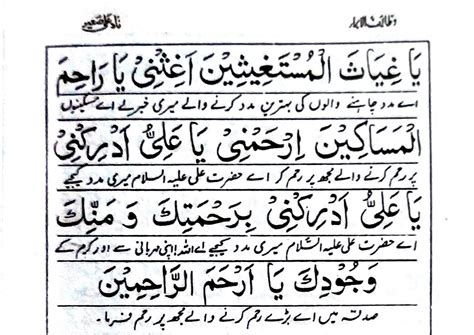 وظائف الابرار نادعلی صغیر
يَا غِيَاثَ الْمُسْتَغِيثِينَ اَغِثْنِى يَا رَاحِمَ
اے مدد چاہنے والوں کی بہترین مدد کرنے والے میری خبر لے اے مسکینوں
الْمَسَاكِينَ اِرْحَمْنِى يَا عَلِىُّ اَدْرِكْنِى
پر رحم کرنے والے مجھ پر رحم کر اے حضرت علی علیہ السلام میری مدد کیجیے
يَا عَلِىُّ اَدْرِكْنِى بِرَحْمَتِكَ وَ مَنِّكَ
اے حضرت علی علیہ السّلام میری مدد کیجیے اے اللہ اپنی مہربانی سے اور کرم کے
وَجُودِكَ يَا اَرْحَمَ الرَّاحِمِينَ
صدقہ میں اے بڑے رحم کرنے والے مجھ پر رحم فرما۔